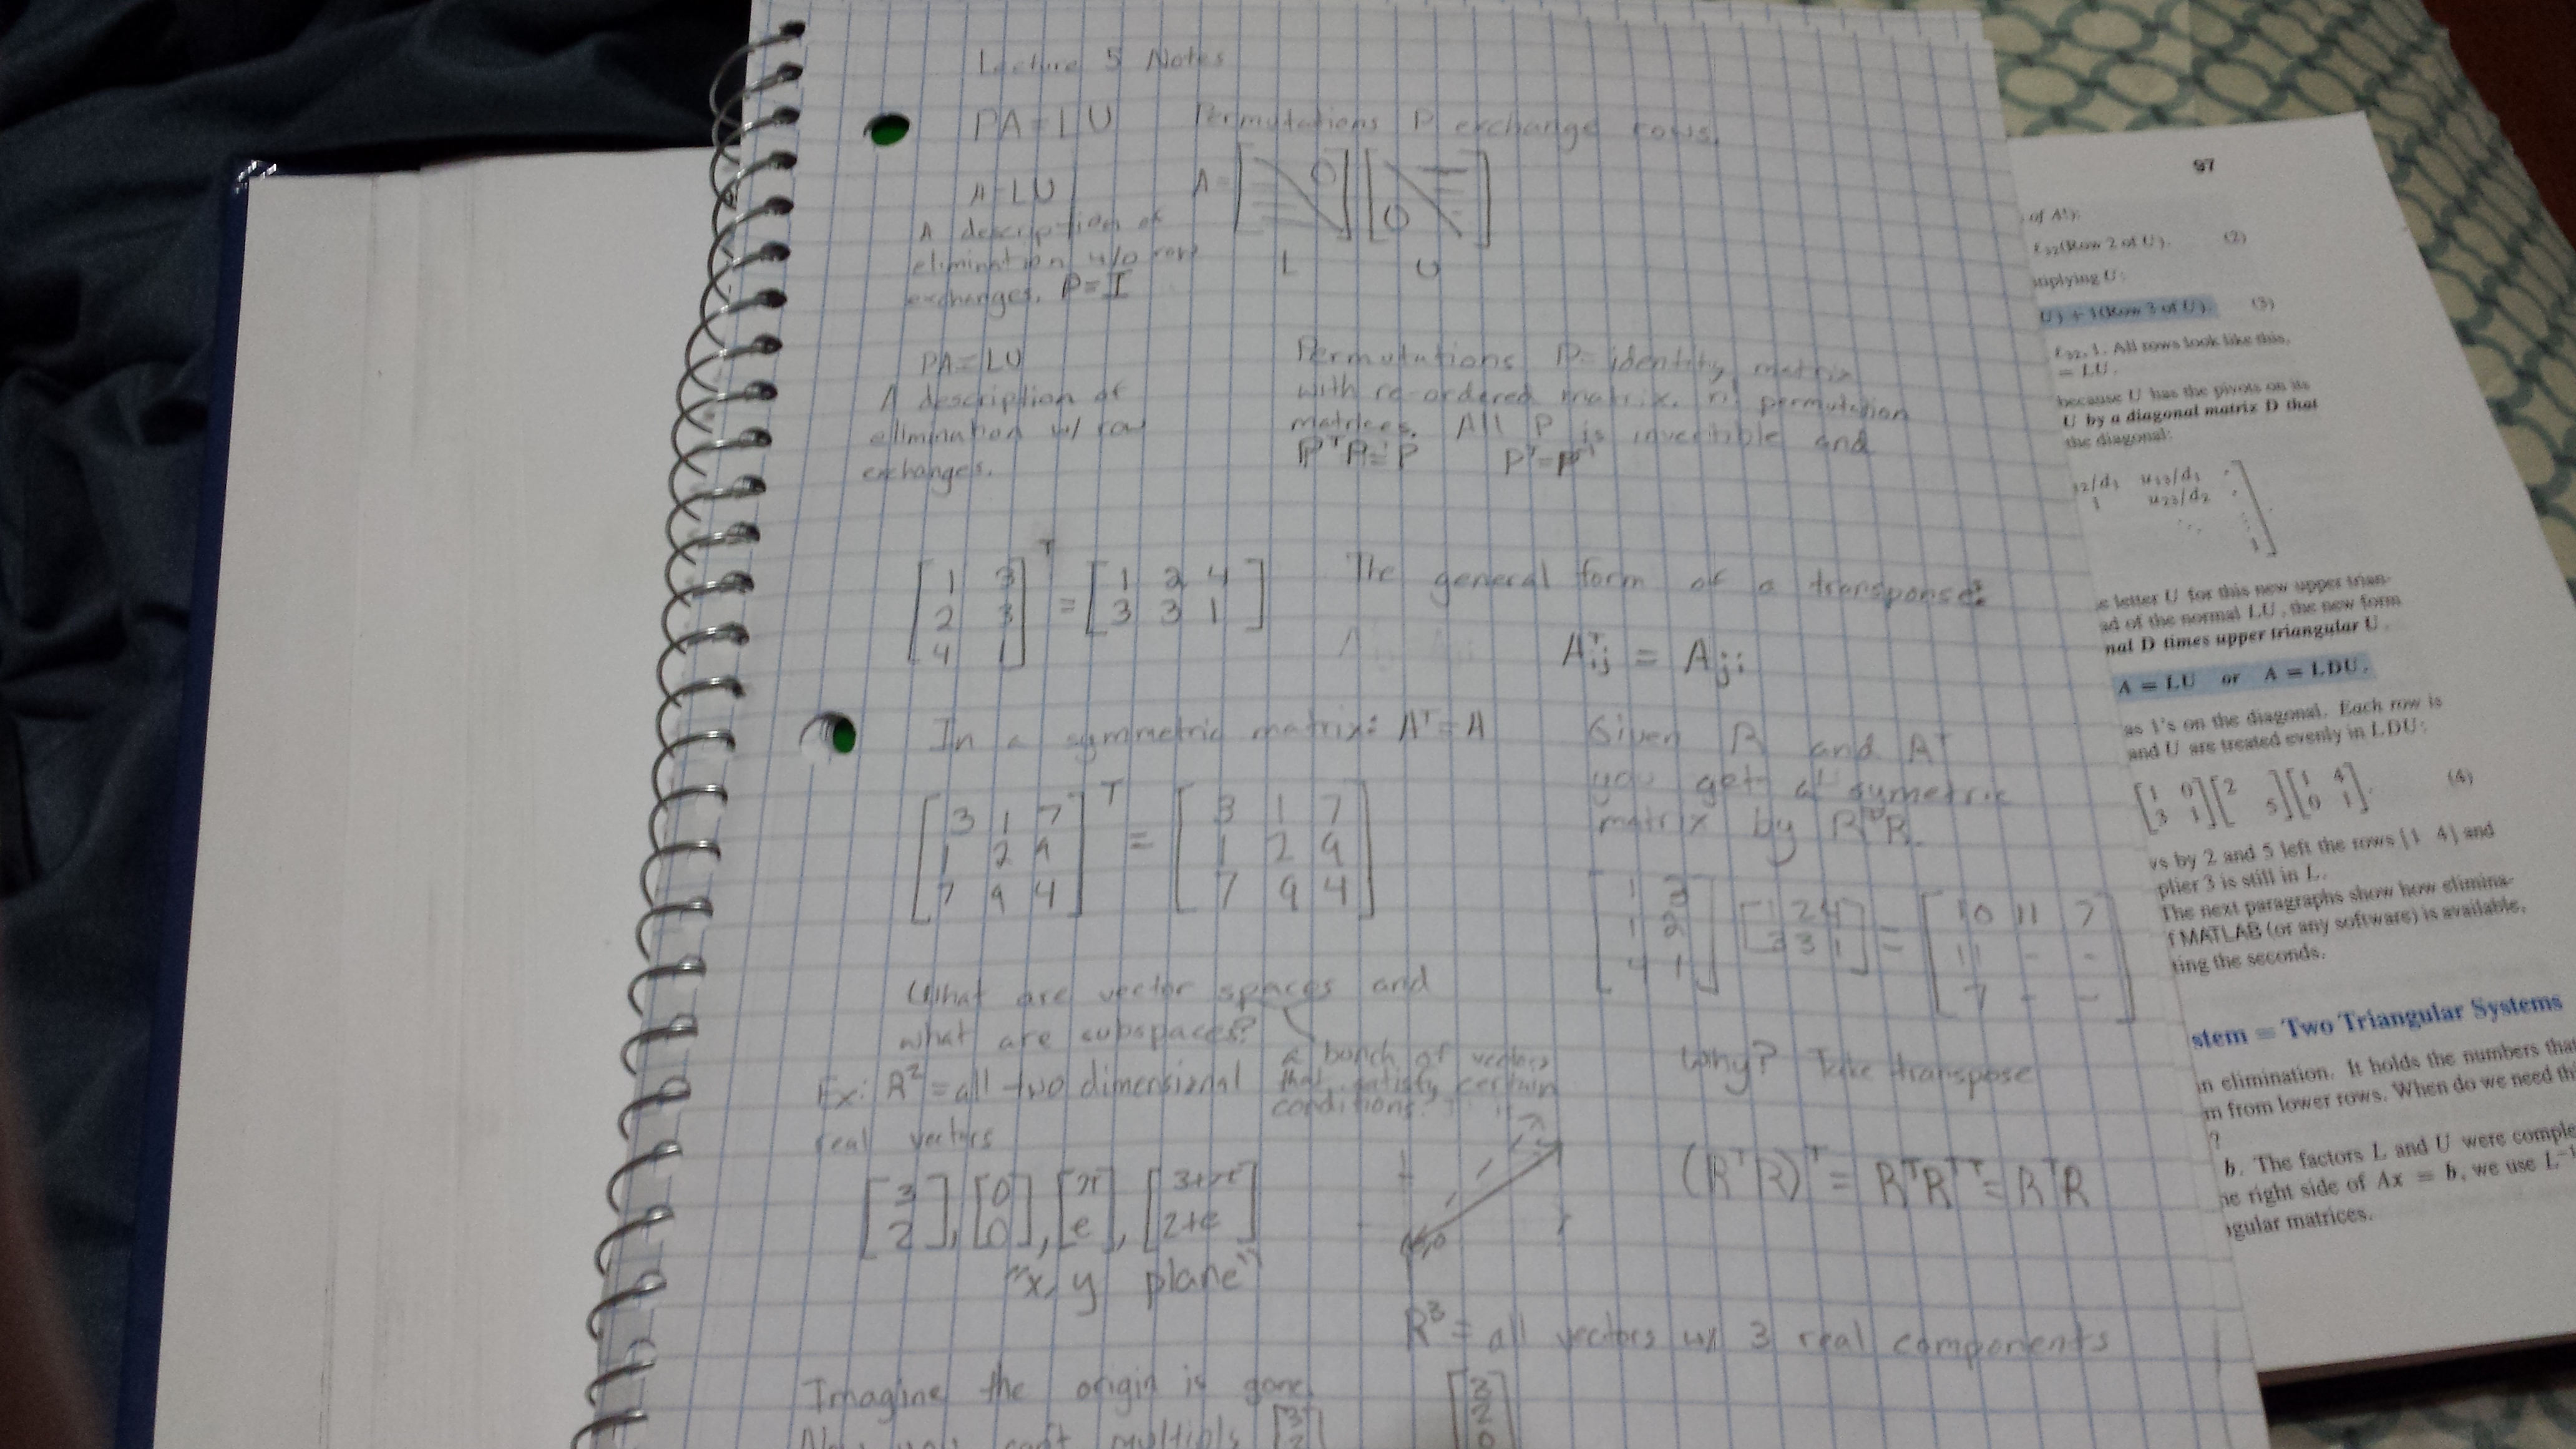 Lecture 5 Notes
PA=LU Permutations P exchange rows.
A=LU
A description of
elimination w/o row
exchanges. P=I
A= [ 0 ] [ 0 ]
L U
PA=LU
A description of
elimination w/ row
exchanges.
Permutations P= identity matrix
with re-ordered matrix. n! permutation
matrices. All P is invertible and
PᵀP=P Pᵀ=P⁻¹
[1 3]ᵀ = [1 2 4]
[2 3] [3 3 1]
[4 1]
The general form of a transpose:
Aᵀij = Aji
In a symmetric matrix: Aᵀ=A
[3 1 7]ᵀ = [3 1 7]
[1 2 9] [1 2 9]
[7 9 4] [7 9 4]
Given R and
you get a symetric
matrix by RᵀR.
[1 3] [1 2 4] = [10 11 7]
[1 2] [3 3 1] [11 - -]
[4 1] [7 - -]
Why? Take transpose
(RᵀR)ᵀ = RᵀRᵀᵀ = RᵀR
What are vector spaces and
what are subspaces?
a bunch of vectors
that satisfy certain
conditions.
Ex: R²=all two dimensional
real vectors
[3] , [0] , [π] , [3+π]
[2] [0] [e] [2+e]
"x, y plane"
R³= all vectors w/ 3 real components
[3]
[2]
[0]
Imagine the origin is gone.
Now you can't multiply [3]
97
of A!):
ℓ32(Row 2 of U). (2)
U) + 1(Row 3 of U). (3)
ℓ32, 1. All rows look like this,
= LU.
because U has the pivots on its
U by a diagonal matrix D that
the diagonal:
12/d1 u13/d1 .
1 u23/d2 .
1
letter U for this new upper trian-
ad of the normal LU, the new form
nal D times upper triangular U.
A = LU or A = LDU.
as 1's on the diagonal. Each row is
and U are treated evenly in LDU:
[1 0] [2 ] [1 4] . (4)
[3 1] [ 5] [0 1]
ws by 2 and 5 left the rows [1 4] and
plier 3 is still in L.
The next paragraphs show how elimina-
f MATLAB (or any software) is available,
ting the seconds.
stem = Two Triangular Systems
in elimination. It holds the numbers that
m from lower rows. When do we need th
?
b. The factors L and U were comple
he right side of Ax = b, we use L⁻¹
ngular matrices.